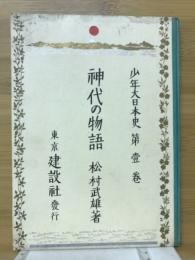 少年大日本史 第壹卷
神代の物語 松村武雄著
東京 建設社發行